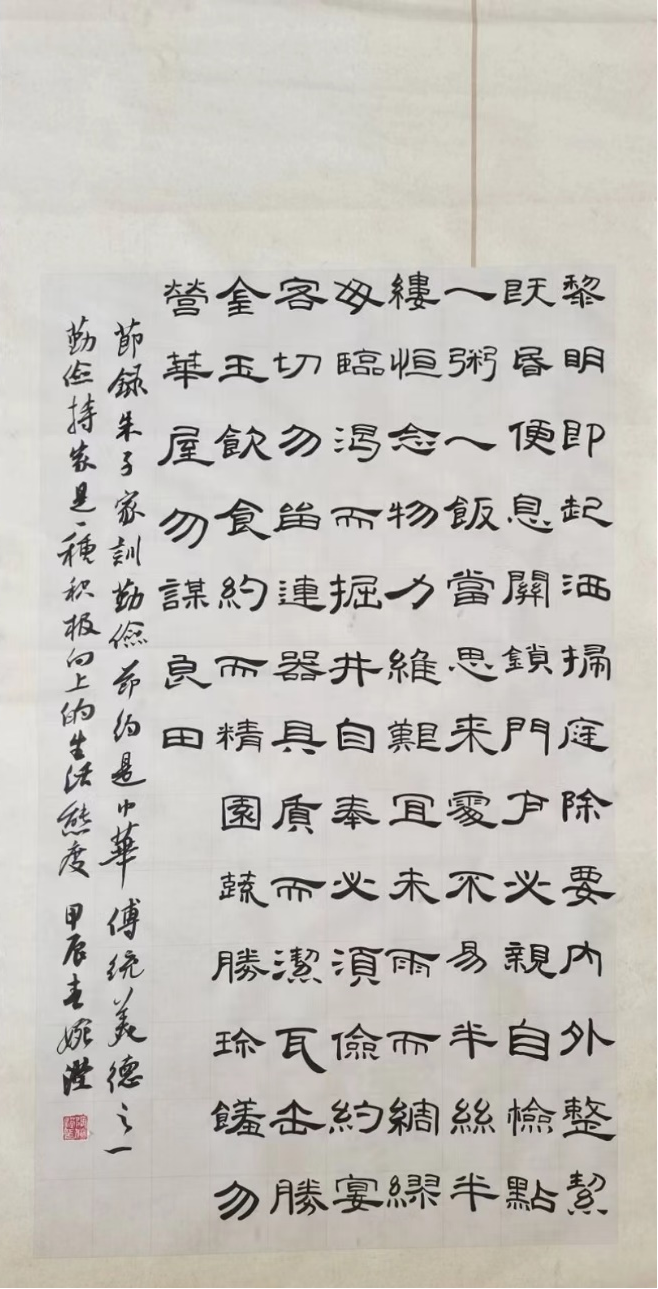 黎明即起洒掃庭除要内外整潔
既昏便息關鎖門户必親自檢點
一粥一飯當思来處不易半絲半
縷恒念物力維艱宜未雨而綢繆
毋臨渴而掘井自奉必須儉約宴
客切勿留連器具質而潔瓦缶勝
金玉飲食約而精園蔬勝珍饈勿
營華屋勿謀良田
節録朱子家訓勤儉節约是中華傳統美德之一
勤俭持家是一種积极向上的生活態度 甲辰春婉瀅